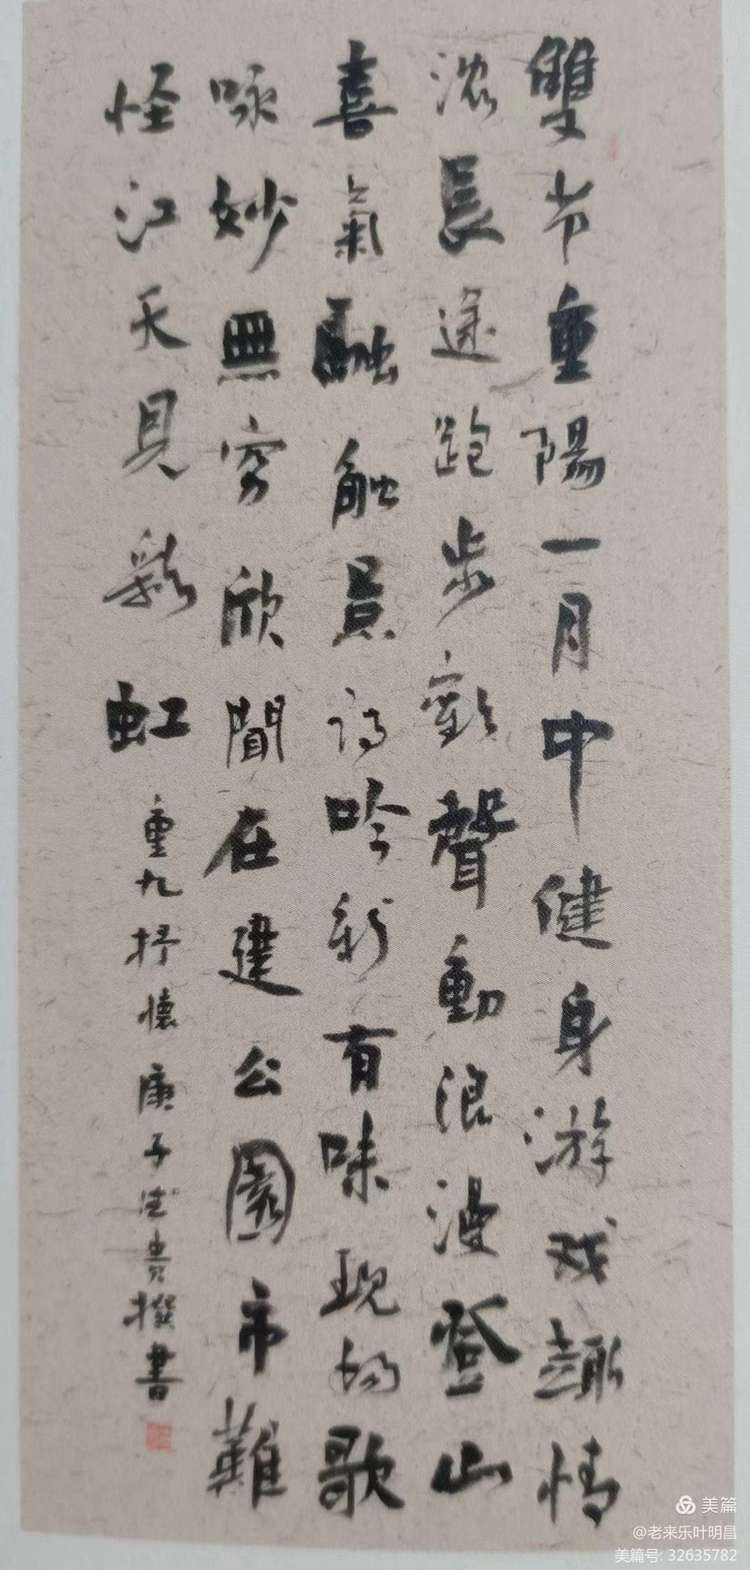 雙节重陽一月中健身游戏趣情
浓長途跑步歡聲動浪漫登山
喜氣融融員詩吟新有味现場歌
咏妙無穷欣聞在建公園市難
怪江天見彩虹
重九抒懷庚子 貴撰書
美篇
@老来乐叶明昌
美篇号: 32635782